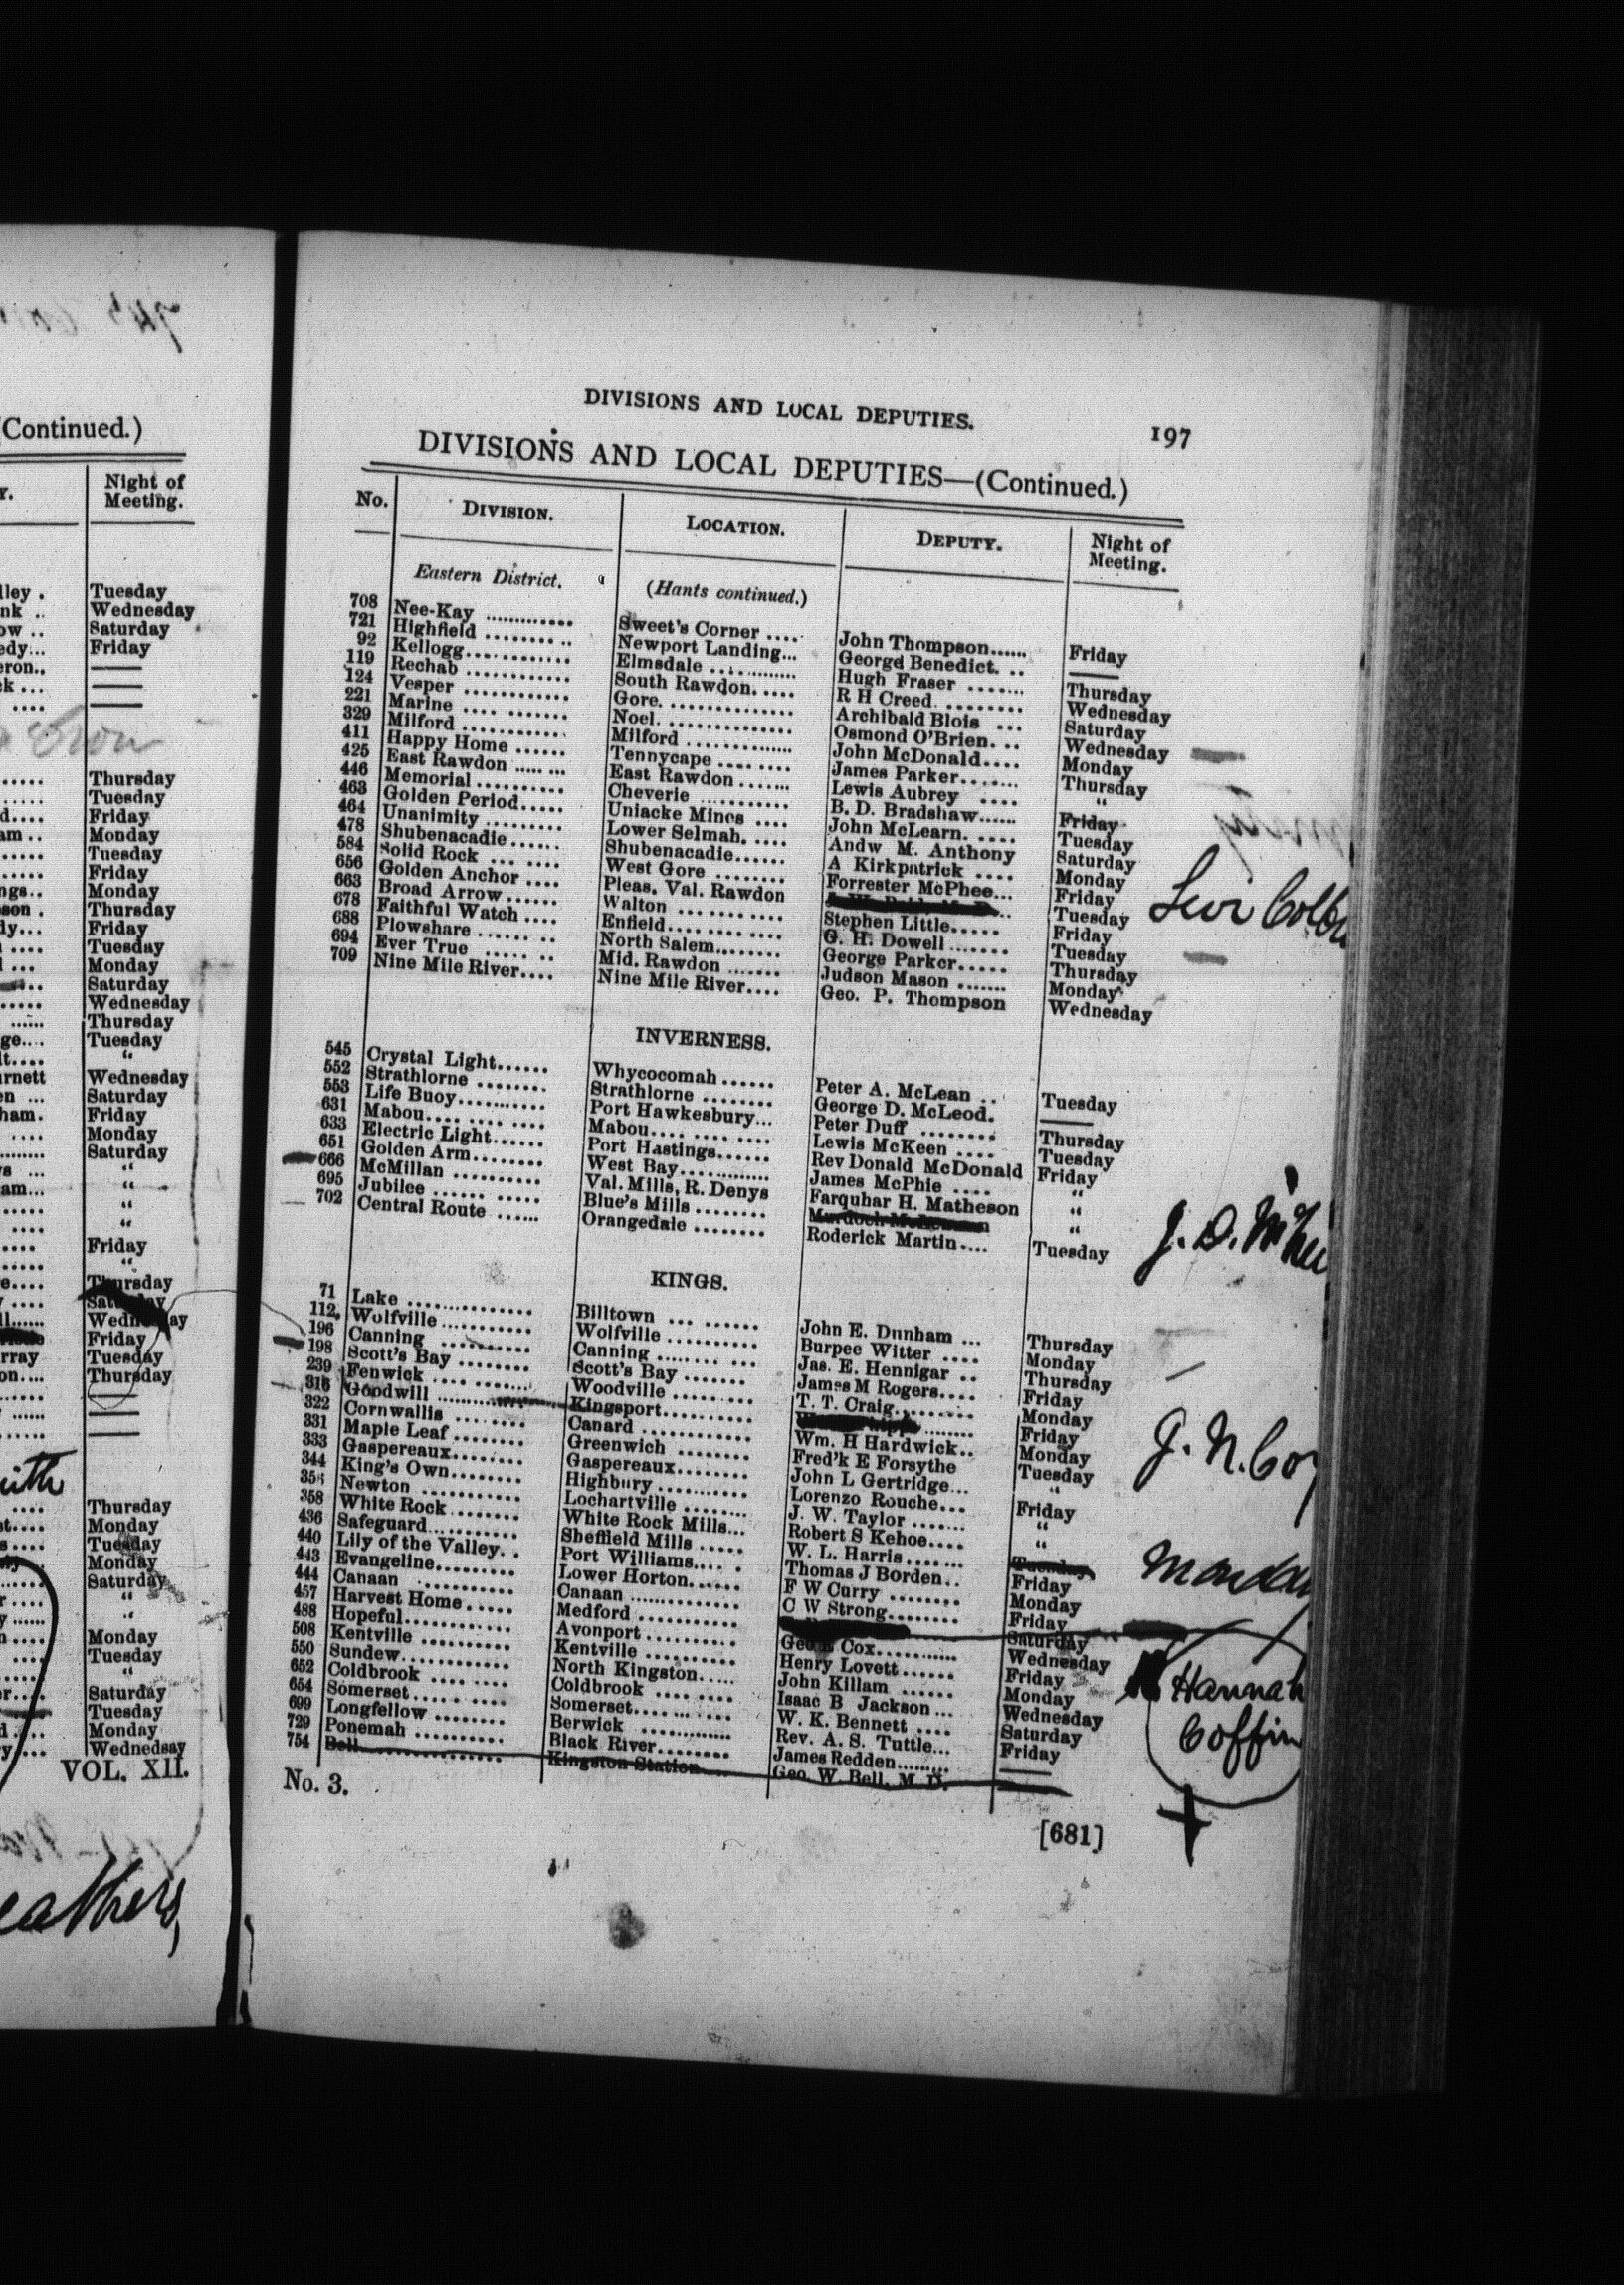 (Continued.)
Night of
Meeting.
Tuesday
Wednesday
Saturday
Friday
Thursday
Tuesday
Friday
Monday
Tuesday
Friday
Monday
Thursday
Friday
Tuesday
Monday
Saturday
Wednesday
Thursday
Tuesday
"
Wednesday
Saturday
Friday
Monday
Saturday
"
"
"
"
Friday
"
Thursday
Saturday
Wednesday
Friday
Tuesday
Thursday
Thursday
Monday
Tuesday
Monday
Saturday
"
"
Monday
Tuesday
"
Saturday
Tuesday
Monday
Wednedsay
VOL. XII.
DIVISIONS AND LOCAL DEPUTIES.
197
DIVISIONS AND LOCAL DEPUTIES—(Continued.)
No. DIVISION. LOCATION. DEPUTY. Night of Meeting.
Eastern District. (Hants continued.)
708 Nee-Kay Sweet's Corner John Thompson Friday
721 Highfield Newport Landing George Benedict. ——
92 Kellogg Elmsdale Hugh Fraser Thursday
119 Rechab South Rawdon R H Creed Wednesday
124 Vesper Gore Archibald Blois Saturday
221 Marine Noel Osmond O'Brien Wednesday
329 Milford Milford John McDonald Monday
411 Happy Home Tennycape James Parker Thursday
425 East Rawdon East Rawdon Lewis Aubrey "
446 Memorial Cheverie B. D. Bradshaw Friday
463 Golden Period Uniacke Mines John McLearn Tuesday
464 Unanimity Lower Selmah Andw M. Anthony Saturday
478 Shubenacadie Shubenacadie A Kirkpatrick Monday
584 Solid Rock West Gore Forrester McPhee Friday
656 Golden Anchor Pleas. Val. Rawdon Tuesday Levi
663 Broad Arrow Walton Stephen Little Friday
678 Faithful Watch Enfield G. H. Dowell Tuesday
688 Plowshare North Salem George Parker Thursday
694 Ever True Mid. Rawdon Judson Mason Monday
709 Nine Mile River Nine Mile River Geo. P. Thompson Wednesday
INVERNESS.
545 Crystal Light Whycocomah Peter A. McLean Tuesday
552 Strathlorne Strathlorne George D. McLeod. ——
553 Life Buoy Port Hawkesbury Peter Duff Thursday
631 Mabou Mabou Lewis McKeen Tuesday
633 Electric Light Port Hastings Rev Donald McDonald Friday
651 Golden Arm West Bay James McPhie "
666 McMillan Val. Mills, R. Denys Farquhar H. Matheson "
695 Jubilee Blue's Mills " J. D.
702 Central Route Orangedale Roderick Martin Tuesday
KINGS.
71 Lake Billtown John E. Dunham Thursday
112 Wolfville Wolfville Burpee Witter Monday
196 Canning Canning Jas. E. Hennigar Thursday
198 Scott's Bay Scott's Bay James M Rogers Friday
239 Fenwick Woodville T. T. Craig Monday
316 Goodwill Kingsport Friday J. N.
322 Cornwallis Canard Wm. H Hardwick Monday
331 Maple Leaf Greenwich Fred'k E Forsythe Tuesday
333 Gaspereaux Gaspereaux John L Gertridge "
344 King's Own Highbury Lorenzo Rouche Friday
356 Newton Lochartville J. W. Taylor "
358 White Rock White Rock Mills Robert S Kehoe "
436 Safeguard Sheffield Mills W. L. Harris Tuesday Monday
440 Lily of the Valley Port Williams Thomas J Borden Friday
443 Evangeline Lower Horton F W Curry Monday
444 Canaan Canaan C W Strong Friday
457 Harvest Home Medford Saturday Hannah Coffin
488 Hopeful Avonport Cox Wednesday
508 Kentville Kentville Henry Lovett Friday
550 Sundew North Kingston John Killam Monday
652 Coldbrook Coldbrook Isaac B Jackson Wednesday
654 Somerset Somerset W. K. Bennett Saturday
699 Longfellow Berwick Rev. A. S. Tuttle Friday
729 Ponemah Black River James Redden ——
754 Bell Kingston Station Geo. W. Bell, M. D. ——
No. 3.
[681]